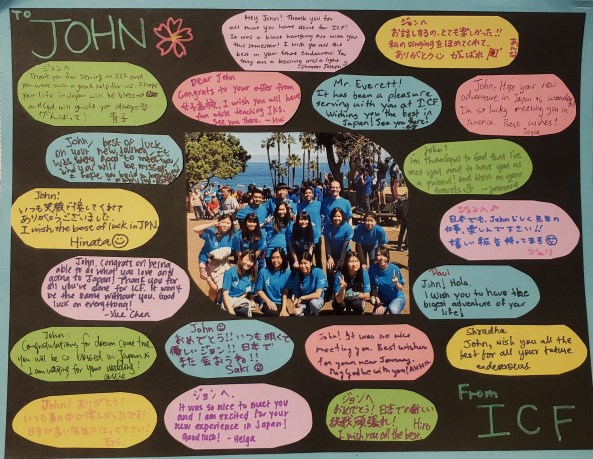 TO
JOHN
Hey John! Thank you for
all that you have done for ICF!
It was a blast hanging out with you
this semester! I wish you all the
best in your future endeavors. You
truly are a blessing and a light.
ジョンへ
お話しするの、とても楽しかった!!
私のsingingをほめてくれて、
ありがとう
がんばれ
ジョンへ
Thank you for serving at ICF and
you were such a good help for us. I hope
your life in Japan will be blessed
and God will guide you always
がんばって!
Dear John
Congrats to your offer from
女子高校. I wish you will have
fun while teaching JKs.
See you there.
Mr. Everett!
It has been a pleasure
serving with you at ICF
Wishing you the best in
Japan! See you there!
John- Hope your new
adventure in Japan is
I'm so lucky meeting you in
America. Best wishes!
Joice
John, best of luck
on your new journey! It
was very good to meet you
and you will be missed.
John!
I'm thankful to God that I've
met you and to have you as
a friend! God bless on your
travels
John!
いつも笑顔で接してくれて
ありがとうございました。
I wish the best of luck in JPN.
Hinata
ジョンへ
日本でも、Johnらしく先生の
仕事、楽しんで下さい!!
嬉しい報告待ってます
ジュリ
John, congrats on being
able to do what you love and
going to Japan! Thank you for
all you've done for ICF. It won't
be the same without you. Good
luck on everything!
-Yue Chen
Paul
John! Hola.
I wish you to have the
biggest adventure of your
life!
John
Congratulations for dream come true
You will be so blessed in Japan
I am waiting for your wedding!
John
おめでとう!! いつも明るくて
優しいジョン!! 日本で
また会おうね!!
Saki
John! It was so nice
meeting you. Best wishes
for your new Journey.
May God be with you!
Shradha
John, wish you all the
best for all your future
endeavours
John! ありがとう!
Eri
ジョンへ,
It was so nice to meet you
and I am excited for your
new experience in Japan!
Good luck! - Helga
ジョンへ
おめでとう! 日本での新しい
挑戦頑張れ! Hiro
I wish you all the best.
From
ICF